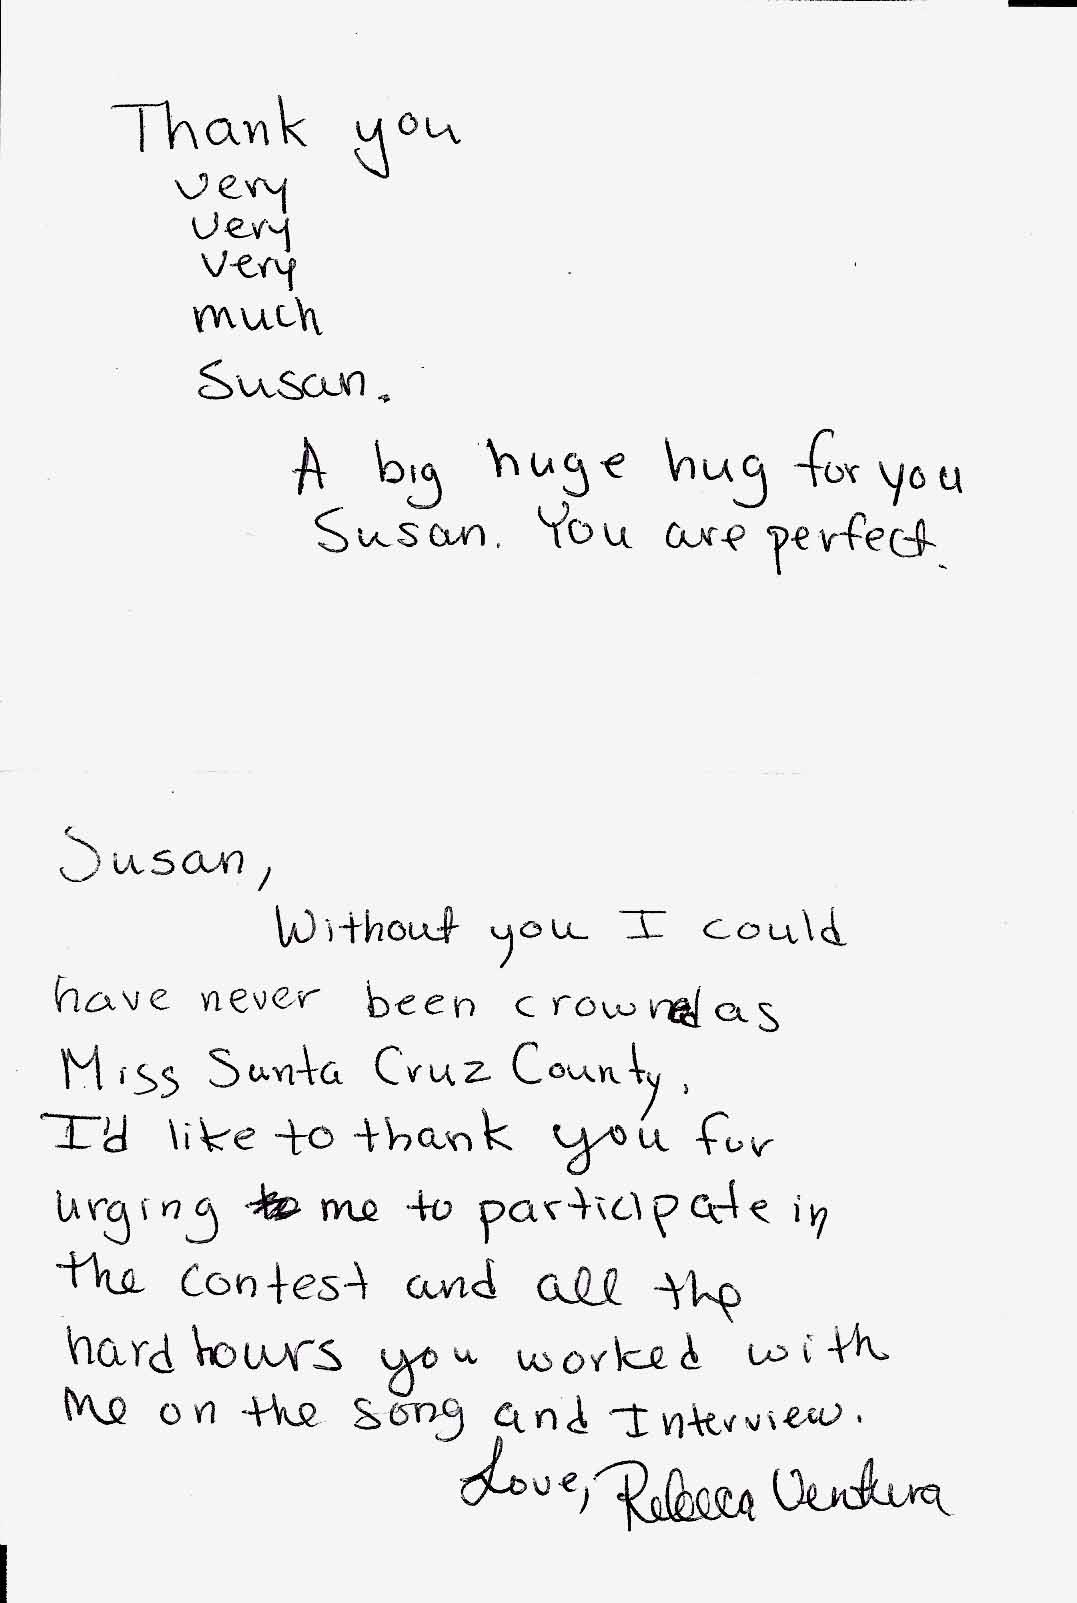 Thank you
very
very
very
much
Susan.
A big huge hug for you
Susan. You are perfect.
Susan,
Without you I could
have never been crowned as
Miss Santa Cruz County.
I'd like to thank you for
urging me to participate in
the contest and all the
hard hours you worked with
me on the song and Interview.
Love, Rebecca Ventura